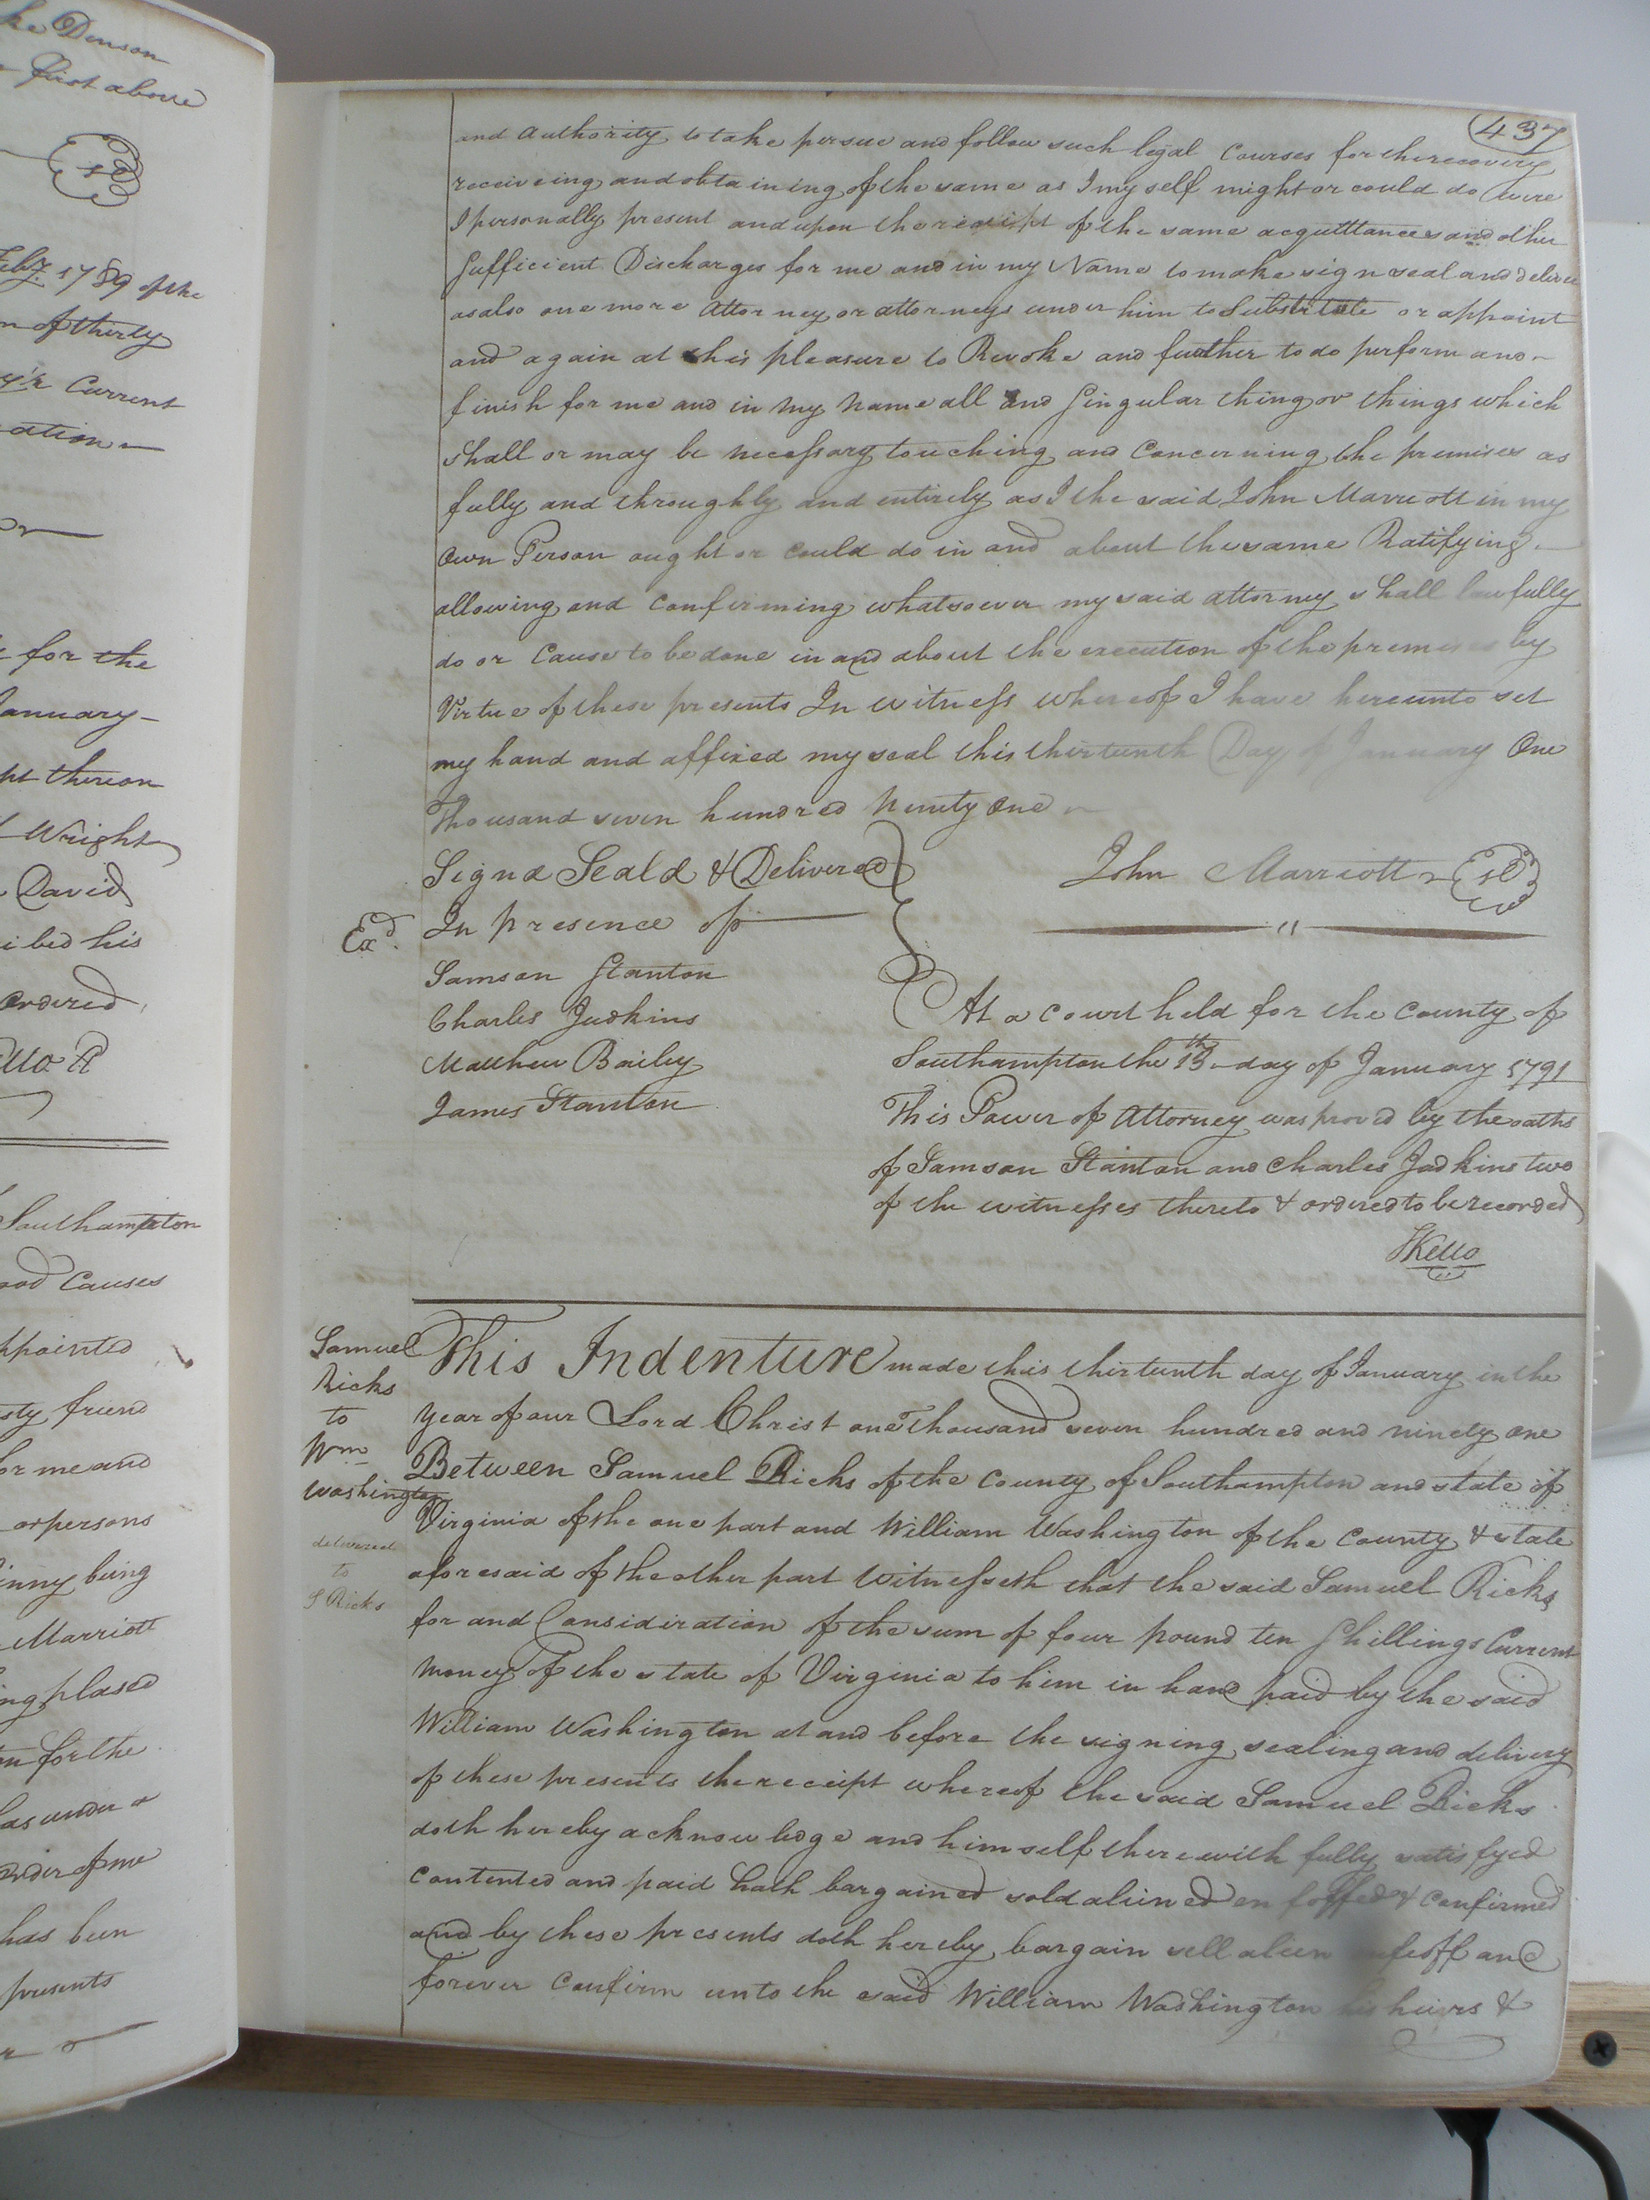 ke Denson
first above
Feby 1789 of the
n of thirty
Current
ation
for the
January
pt thereon
Wright
David
ibed his
ordered
Southampton
good Causes
ppointed
sty friend
for me and
or persons
inny being
Marriott
ing plased
on for the
has under a
order of me
has been
presents
437
and authority to take persue and follow such legal Courses for the recovery
receiveing and obtaining of the same as I my self might or could do were
I personally present and upon the receipt of the same acquttances and other
Sufficient Discharges for me and in my Name to make sign seal and deliver
as also one more attorney or attorneys under him to Substitute or appoint
and again at his pleasure to Revoke and further to do perform and
finish for me and in my name all and Singular thing or things which
shall or may be necessary touching and Concerning the premises as
fully and throughly and entirely as I the said John Marriott in my
Own Person ought or could do in and about the same Ratifying
allowing and confirming whatsoever my said attorney shall lawfully
do or Cause to be done in and about the execution of the premises by
Virtue of these presents In witness whereof I have hereunto set
my hand and affixed my seal this thirteenth Day of January One
Thousand seven hundred Ninety One
Signd Seald & Delivered
In presence of
Exd.
John Marriott
Samson Stanton
Charles Judkins
Matthew Bailey
James Stanton
At a Court held for the County of
Southampton the 13th day of January 1791
This Power of Attorney was proved by the oaths
of Samson Stanton and Charles Judkins two
of the witnesses thereto & ordered to be recorded
Kello
Samuel
Ricks
to
Wm
Washington
delivered
to
S Ricks
This Indenture made this thirteenth day of January in the
Year of our Lord Christ one Thousand seven hundred and ninety one
Between Samuel Ricks of the County of Southampton and state of
Virginia of the one part and William Washington of the County & state
aforesaid of the other part Witnesseth that the said Samuel Ricks
for and Consideration of the sum of four pound ten Shillings Current
Money of the state of Virginia to him in hand paid by the said
William Washington at and before the signing sealing and delivery
of these presents the receipt whereof the said Samuel Ricks
doth hereby acknowledge and himself therewith fully satisfyed
Contented and paid hath bargained sold aliened enfoffed & confirmed
and by these presents doth hereby bargain sell alien enfeoff and
forever Confirm unto the said William Washington his heirs &